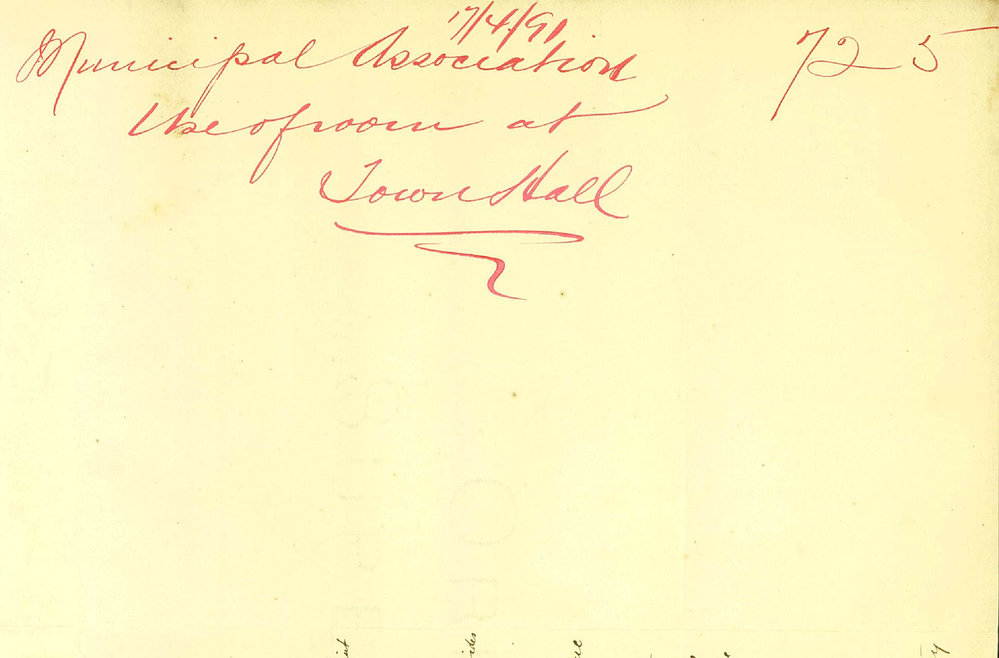 17/4/91
Municipal Association 725
Use of room at
Town Hall